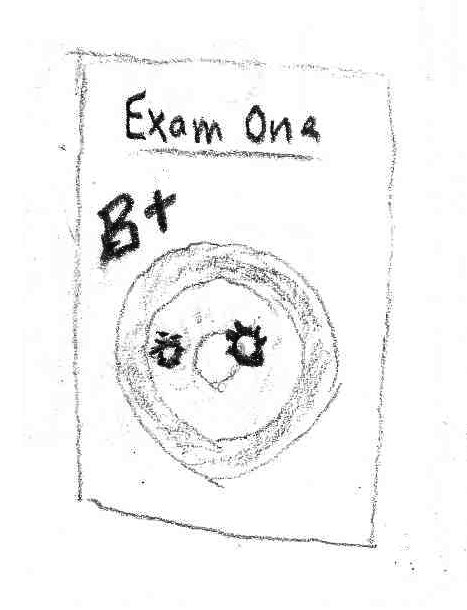 Exam One
B+